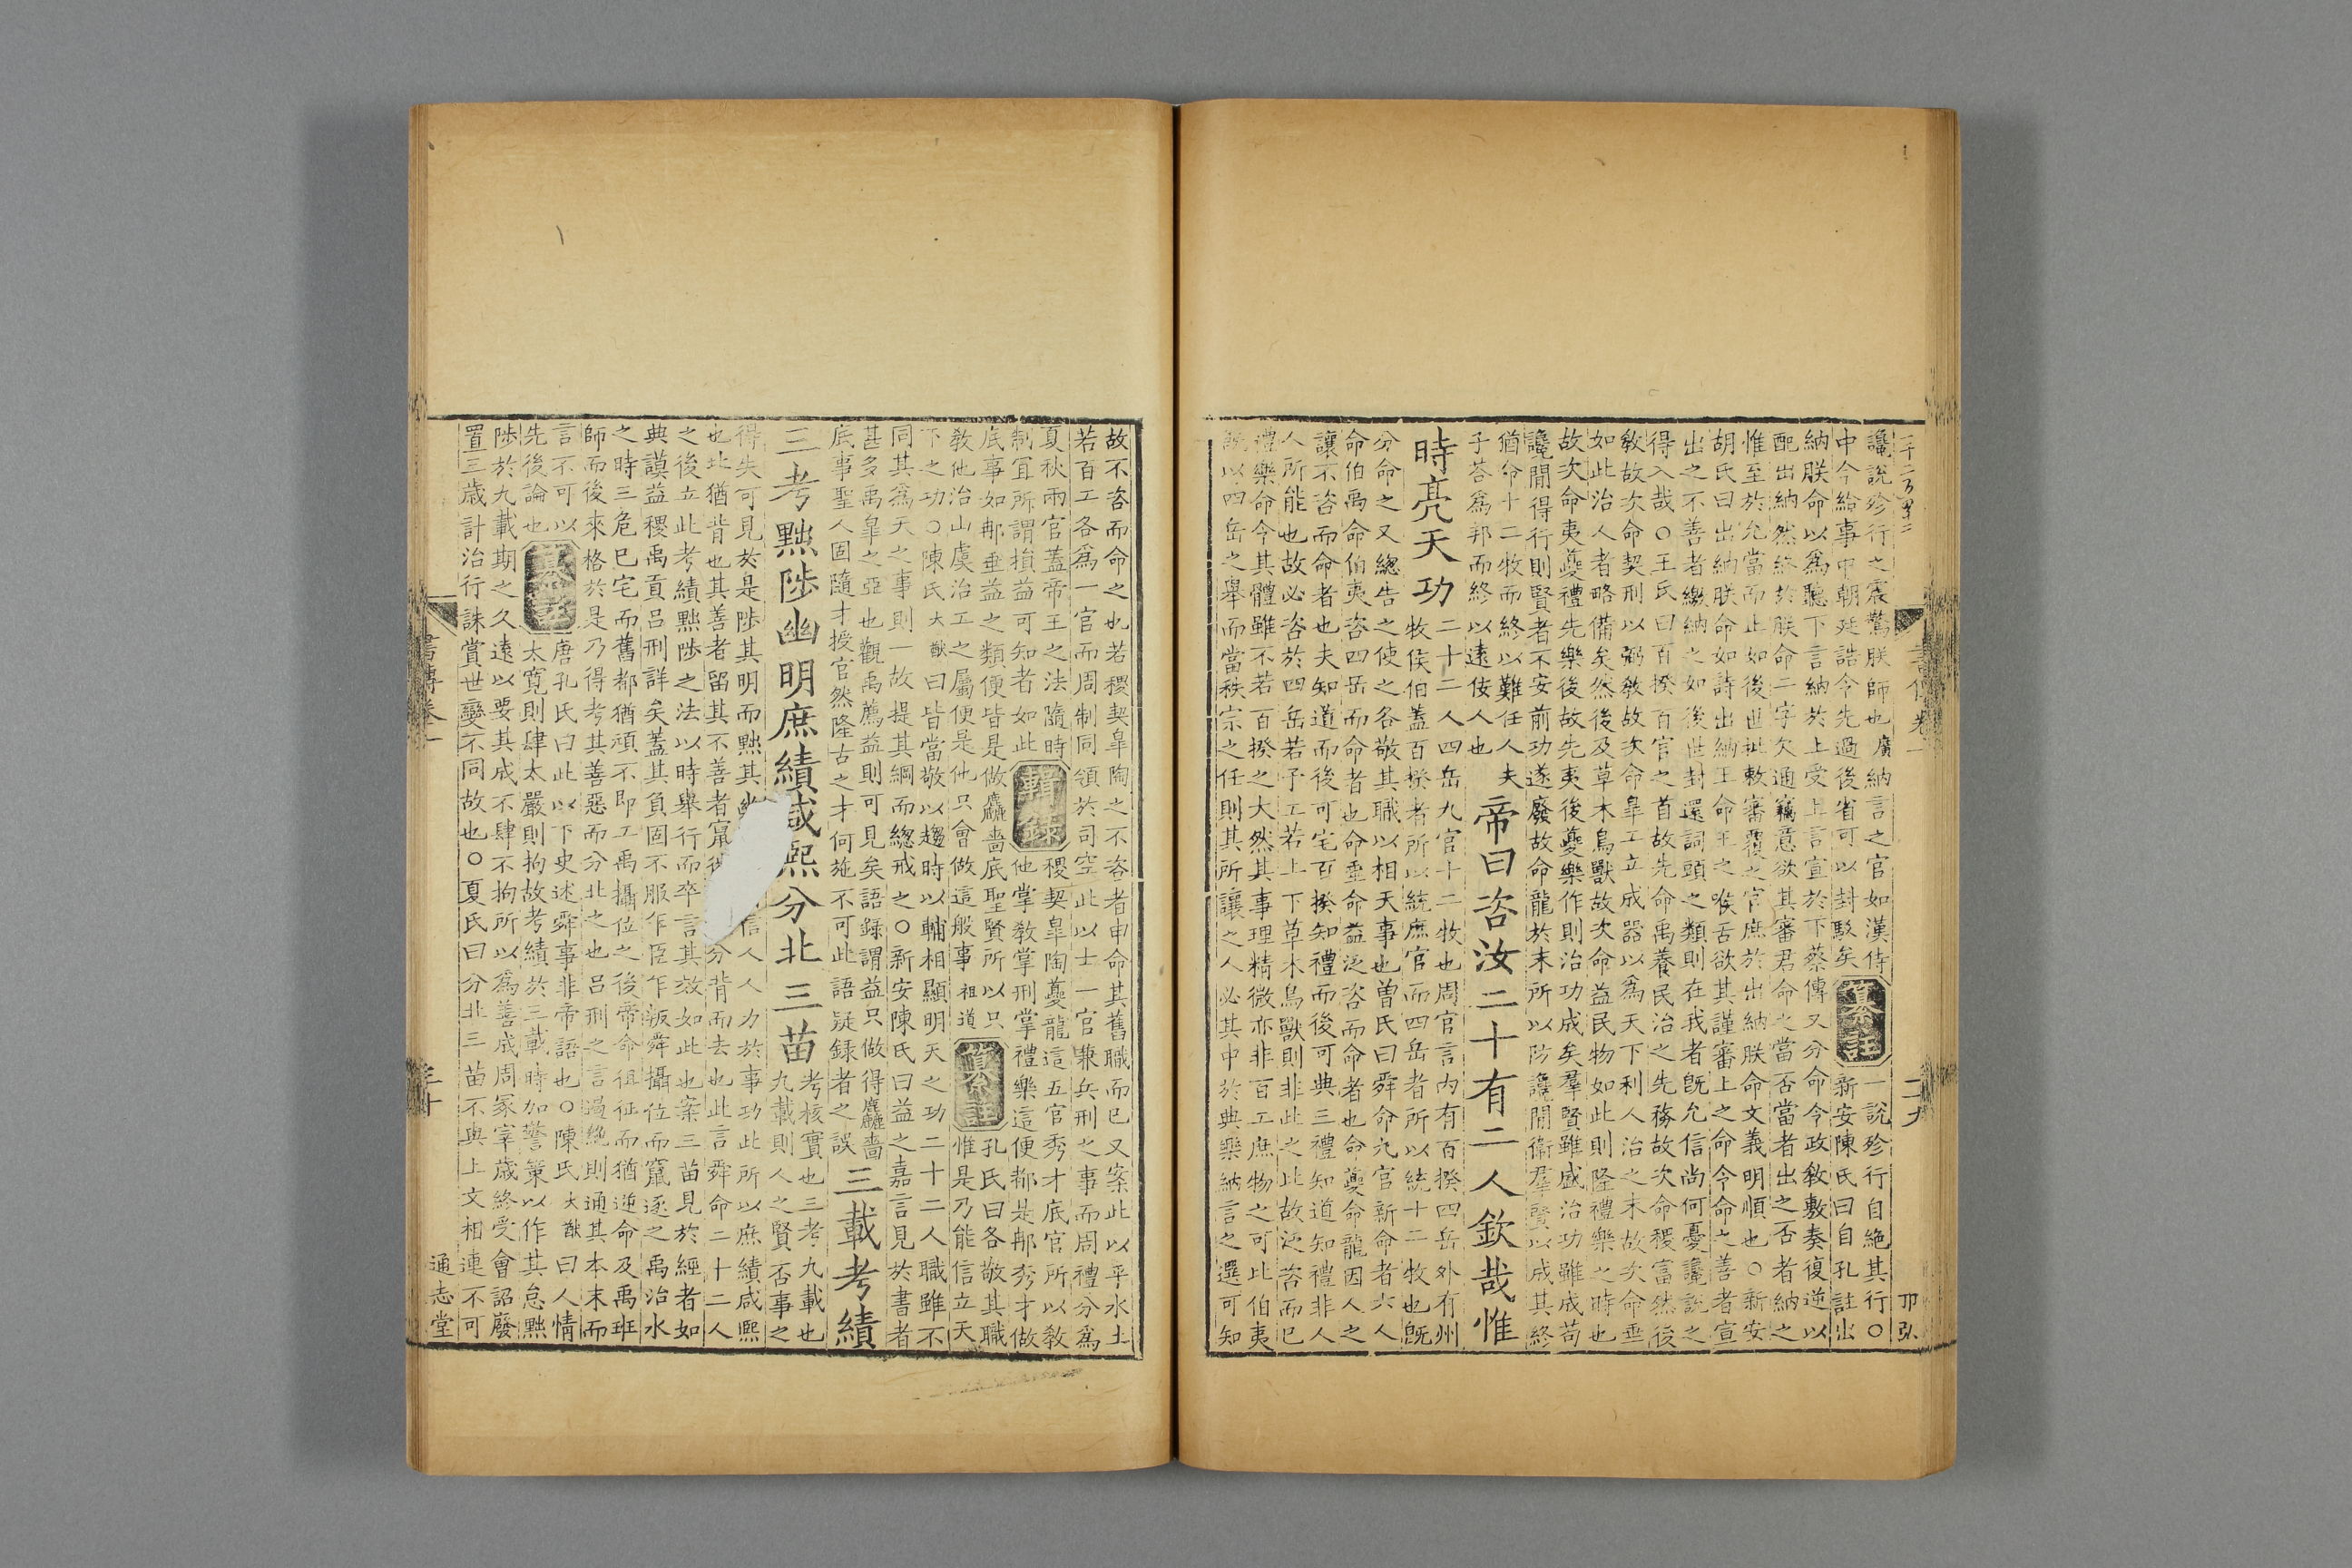 讒說殄行之震驚朕師也廣納言之官如漢侍 一說殄行自絶其行○
中今給事中朝廷誥令先過後省可以封駁矣纂註新安陳氏曰自孔註出
納朕命以爲聽下言納於上受上言宣於下蔡傳又分命令政敎敷奏復逆以
配出納然終於朕命二字欠通竊意欲其審君命之當否當者出之否者納之
惟至於允當而止如後世批敕審覆之官庶於出納朕命文義明順也○新安
胡氏曰出納朕命如詩出納王命王之喉舌欲其謹審上之命令命之善者宣
出之不善者繳納之如後世封還詞頭之類則在我者旣允信尚何憂讒說之
得入哉○王氏曰百揆百官之首故先命禹養民治之先務故次命稷富然後
敎故次命契刑以弼敎故次命皐工立成器以爲天下利人治之末故次命垂
如此治人者略備矣然後及草木鳥獸故次命益民物如此則隆禮樂之時也
故次命夷夔禮先樂後故先夷後夔樂作則治功成矣羣賢雖盛治功雖成苟
讒間得行則賢者不安前功遂廢故命龍於末所以防讒間衞羣賢以成其終
猶命十二牧而終以難任人夫
子荅爲邦而終以遠佞人也
帝曰咨汝二十有二人欽哉惟
時亮天功
二十二人四岳九官十二牧也周官言內有百揆四岳外有州
牧侯伯蓋百揆者所以統庶官而四岳者所以統十二牧也旣
分命之又總告之使之各敬其職以相天事也曾氏曰舜命九官新命者六人
命伯禹命伯夷咨四岳而命者也命垂命益泛咨而命者也命夔命龍因人之
讓不咨而命者也夫知道而後可宅百揆知禮而後可典三禮知道知禮非人
人所能也故必咨於四岳若予工若上下草木鳥獸則非此之比故泛咨而已
禮樂命令其體雖不若百揆之大然其事理精微亦非百工庶物之可比伯夷
旣以四岳之舉而當秩宗之任則其所讓之人必其中於典樂納言之選可知
書傳卷一
二九
卩弘
故不咨而命之也若稷契皐陶之不咨者申命其舊職而已又案此以平水土
若百工各爲一官而周制同領於司空此以士一官兼兵刑之事而周禮分爲
夏秋兩官蓋帝王之法隨時
制宜所謂損益可知者如此
輯錄
稷契皐陶夔龍這五官秀才底官所以敎
他掌敎掌刑掌禮樂這便都是那秀才做
底事如那垂益之類便皆是做麤嗇底聖賢所以只
敎他治山虞治工之屬便是他只會做這般事祖道
纂註
孔氏曰各敬其職
惟是乃能信立天
下之功○陳氏大猷曰皆當敬以趨時以輔相顯明天之功二十二人職雖不
同其爲天之事則一故提其綱而總戒之○新安陳氏曰益之嘉言見於書者
甚多禹皐之亞也觀禹薦益則可見矣語錄謂益只做得麤嗇
底事聖人固隨才授官然隆古之才何施不可此語疑録者之誤
三載考績
三考黜陟幽明庶績咸熙分北三苗
考核實也三考九載也
九載則人之賢否事之
得失可見於是陟其明而黜其 信人人力於事功此所以庶績咸熙
也北猶背也其善者留其不善者竄 分背而去也此言舜命二十二人
之後立此考績黜陟之法以時舉行而卒言其效如此也案三苗見於經者如
典謨益稷禹貢呂刑詳矣蓋其負固不服乍臣乍叛舜攝位而竄逐之禹治水
之時三危已宅而舊都猶頑不即工禹攝位之後帝命徂征而猶逆命及禹班
師而後來格於是乃得考其善惡而分北之也呂刑之言遏絶則通其本末而
言不可以
先後論也
纂註
唐孔氏曰此以下史述舜事非帝語也○陳氏大猷曰人情
太寬則肆太嚴則拘故考績於三載時加警策以作其怠黜
陟於九載期之久遠以要其成不肆不拘所以爲善成周冢宰歳終受會詔廢
置三歲計治行誅賞世變不同故也○夏氏曰分北三苗不與上文相連不可
書傳卷一
三十
通志堂